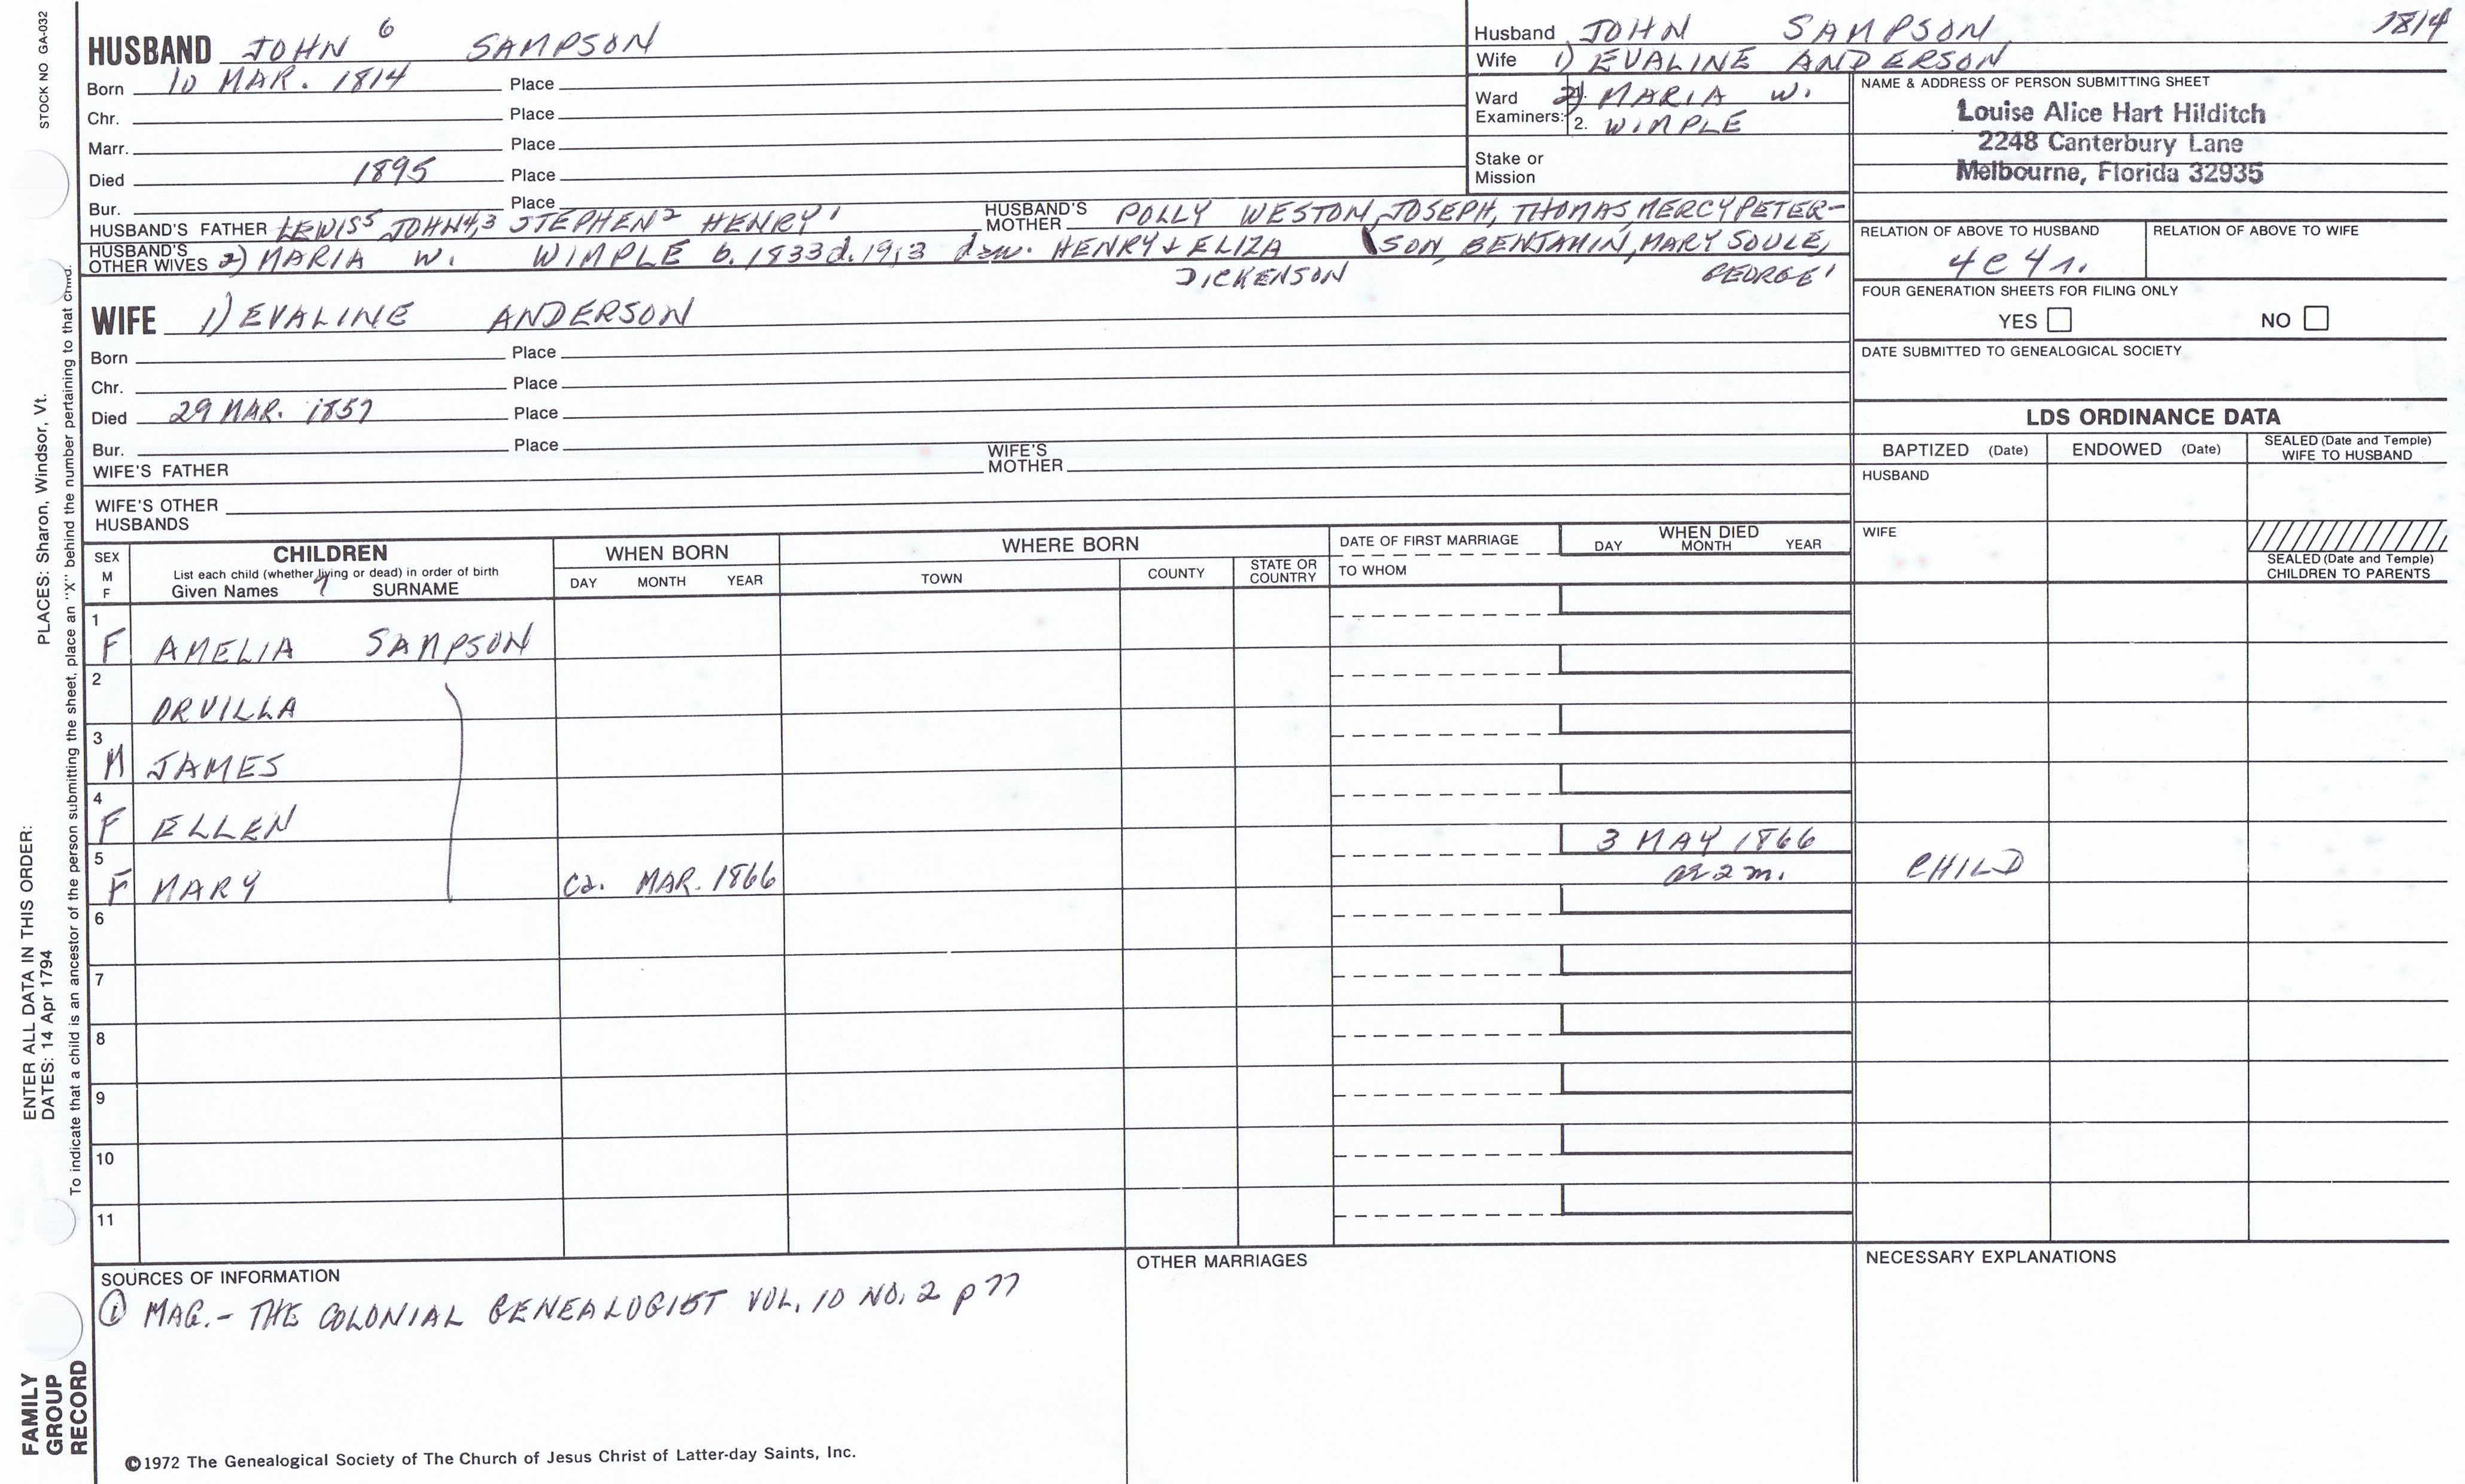 STOCK NO GA-032
HUSBAND JOHN 6 SAMPSON
Born 10 MAR. 1814 Place
Chr. Place
Marr. Place
Died 1895 Place
Bur. Place
HUSBAND'S FATHER LEWIS5 JOHN4,3 STEPHEN2 HENRY1 HUSBAND'S MOTHER POLLY WESTON, JOSEPH, THOMAS, MERCY PETER-
SON, BENJAMIN, MARY SOULE,
GEORGE1
HUSBAND'S OTHER WIVES 2) MARIA W. WIMPLE b. 1833 d. 1913 daw. HENRY & ELIZA
DICKENSON
WIFE 1) EVALINE ANDERSON
Born Place
Chr. Place
Died 29 MAR. 1857 Place
Bur. Place
WIFE'S FATHER WIFE'S MOTHER
WIFE'S OTHER HUSBANDS
Husband JOHN SAMPSON 1814
Wife 1) EVALINE ANDERSON
Ward 2) MARIA W.
Examiners: 2. WIMPLE
Stake or Mission
NAME & ADDRESS OF PERSON SUBMITTING SHEET
Louise Alice Hart Hilditch
2248 Canterbury Lane
Melbourne, Florida 32935
RELATION OF ABOVE TO HUSBAND RELATION OF ABOVE TO WIFE
4c4r.
FOUR GENERATION SHEETS FOR FILING ONLY
YES NO
DATE SUBMITTED TO GENEALOGICAL SOCIETY
LDS ORDINANCE DATA
BAPTIZED (Date) ENDOWED (Date) SEALED (Date and Temple) WIFE TO HUSBAND
HUSBAND
WIFE
SEALED (Date and Temple) CHILDREN TO PARENTS
SEX M F CHILDREN WHEN BORN WHERE BORN DATE OF FIRST MARRIAGE WHEN DIED
List each child (whether living or dead) in order of birth
Given Names SURNAME DAY MONTH YEAR TOWN COUNTY STATE OR COUNTRY TO WHOM DAY MONTH YEAR
1 F AMELIA SAMPSON
2 ORVILLA
3 M JAMES
4 F ELLEN
5 F MARY ca. MAR. 1866 3 MAY 1866 ae 2 m. CHILD
6
7
8
9
10
11
SOURCES OF INFORMATION
① MAG.- THE COLONIAL GENEALOGIST VOL. 10 NO. 2 p 77
OTHER MARRIAGES
NECESSARY EXPLANATIONS
©1972 The Genealogical Society of The Church of Jesus Christ of Latter-day Saints, Inc.
ENTER ALL DATA IN THIS ORDER:
DATES: 14 Apr 1794 PLACES: Sharon, Windsor, Vt.
To indicate that a child is an ancestor of the person submitting the sheet, place an "X" behind the number pertaining to that child.
FAMILY
GROUP
RECORD